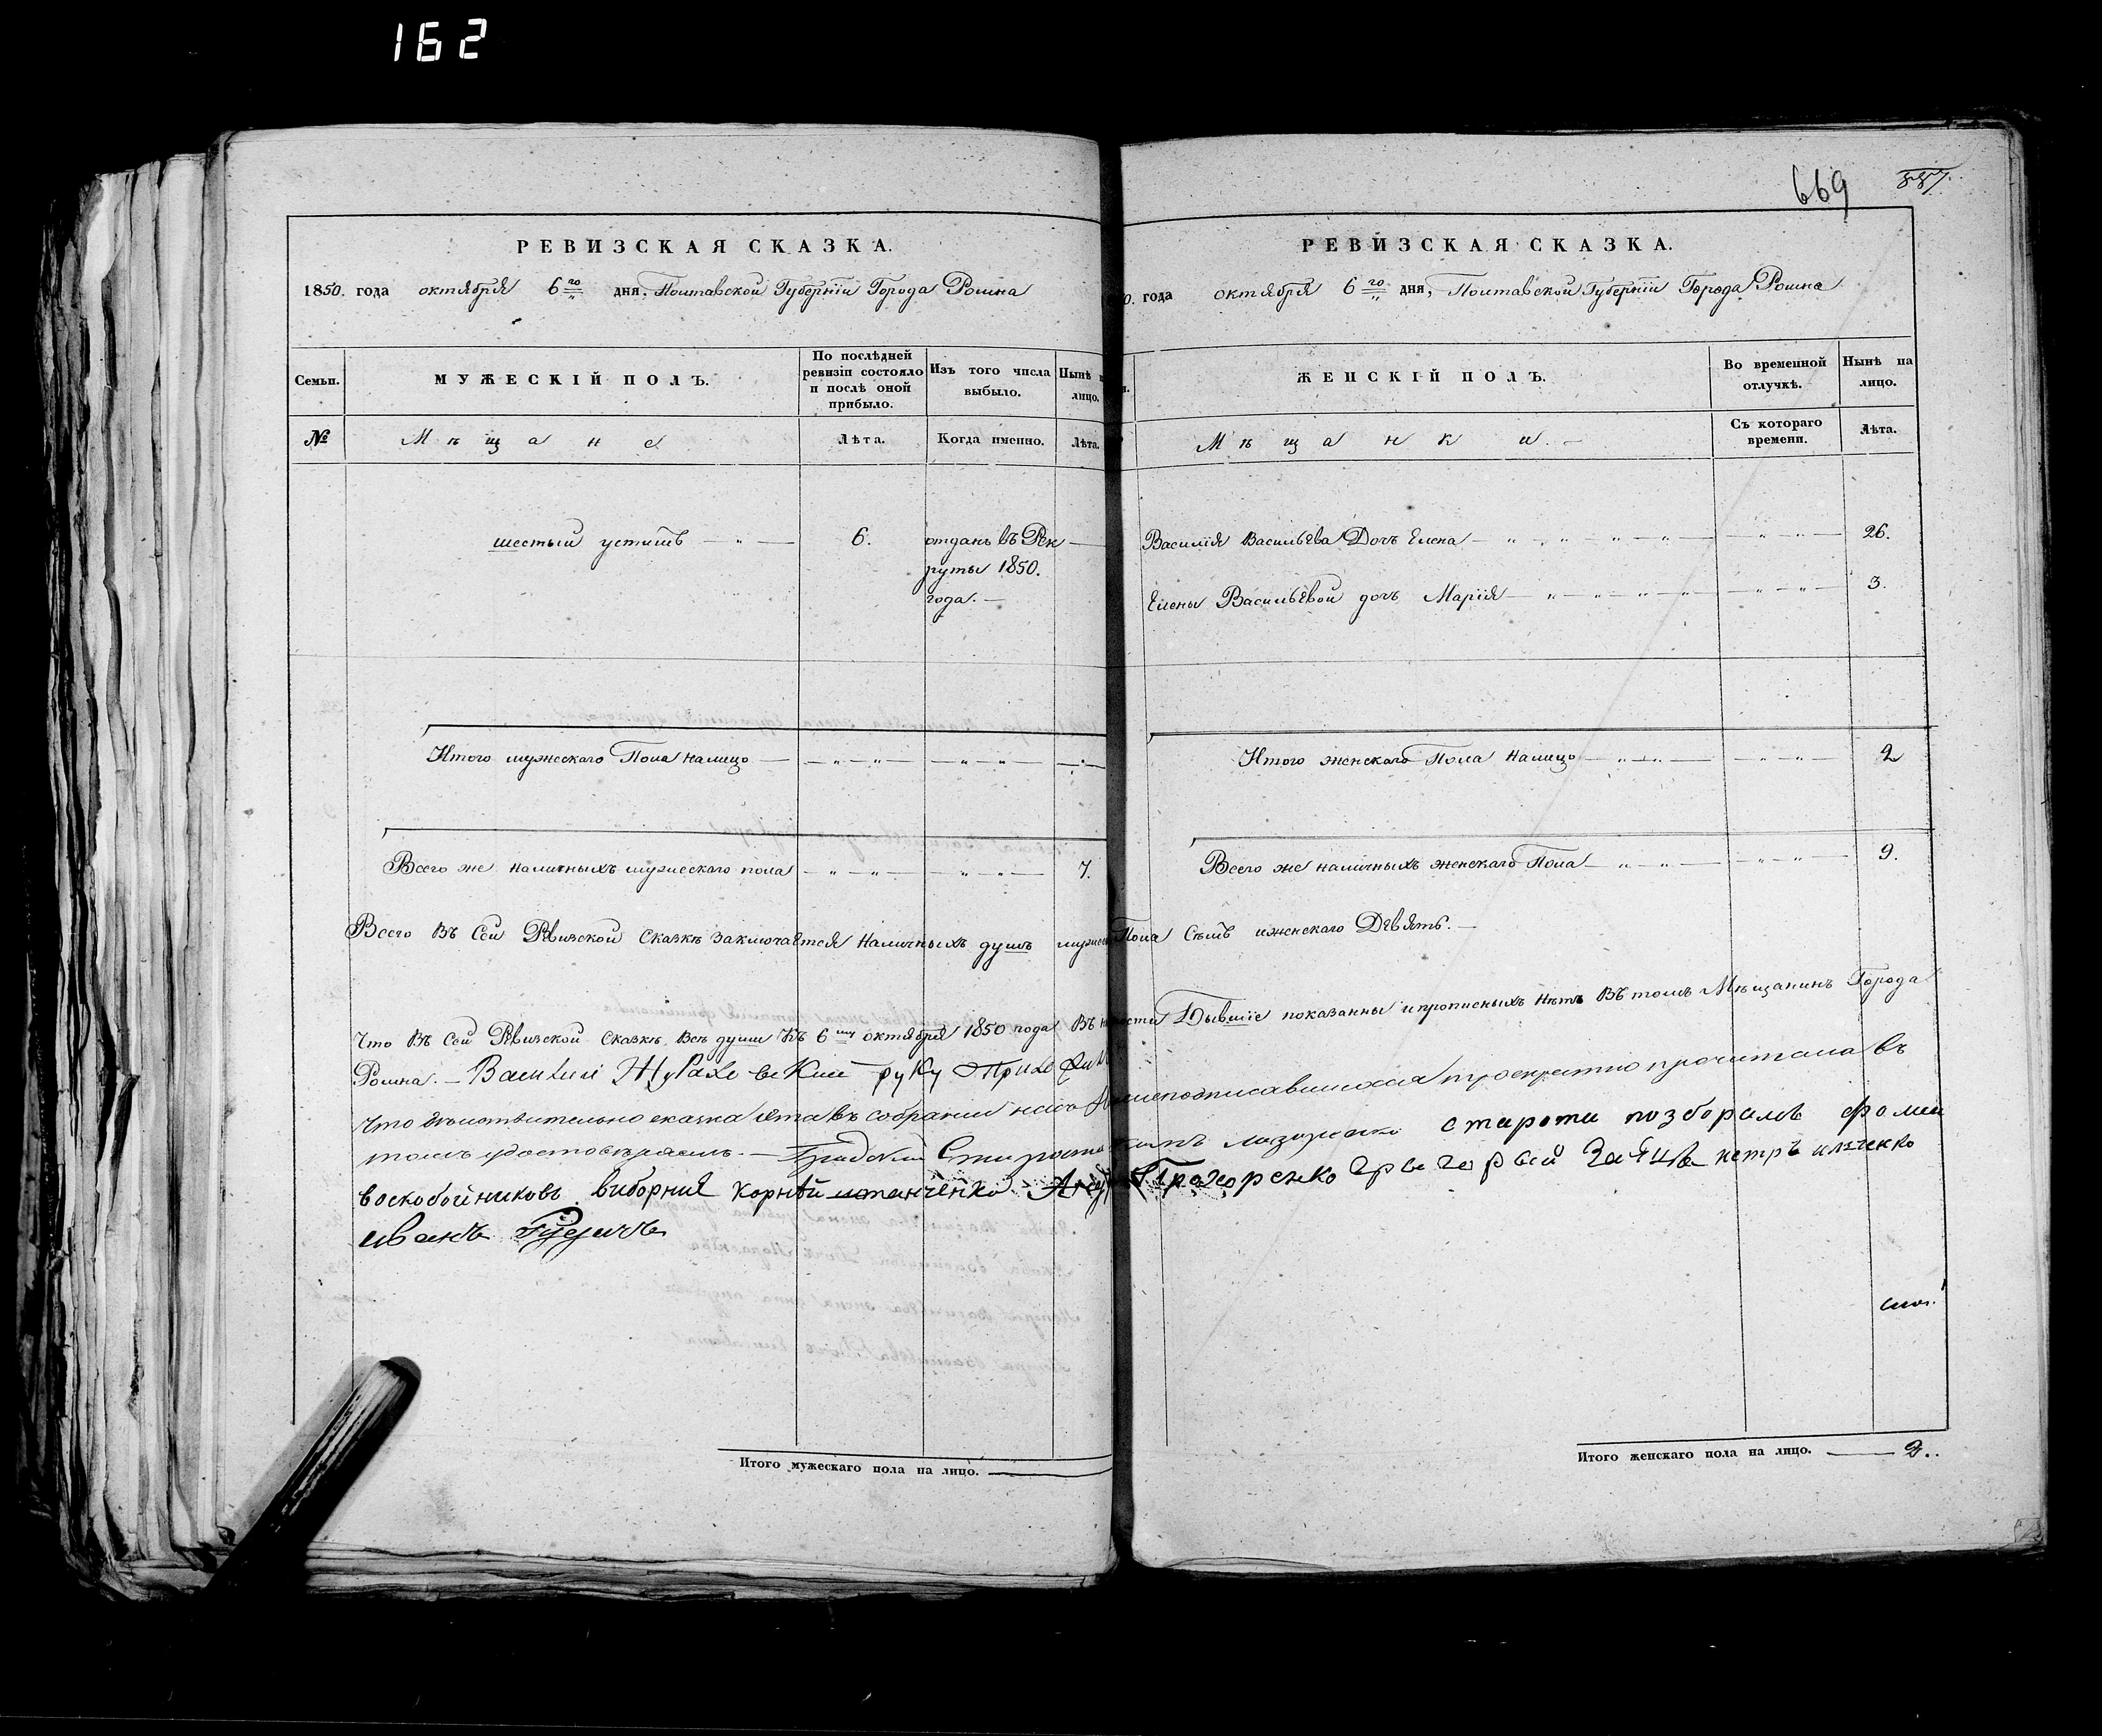 162
РЕВИЗСКАЯ СКАЗКА.
1850. года октября 6го дня, Полтавской Губерніи Города Ромна
Семьи.
МУЖЕСКІЙ ПОЛЪ.
По послѣдней ревизіи состояло и послѣ оной прибыло.
Изъ того числа выбыло.
Нынѣ н
лицо.
№
Мѣщане
Лѣта.
Когда именно.
Лѣта.
шестый устимъ 6. отданъ въ Рек
руты 1850.
года.
Итого мужескаго Пола налицо
Всего же наличныхъ мужескаго пола 7.
669 887.
РЕВИЗСКАЯ СКАЗКА.
0. года октября 6го дня, Полтавской Губерніи Города Ромна
ЖЕНСКІЙ ПОЛЪ.
Во временной отлучкѣ.
Нынѣ на лицо.
Мѣщанки.
Съ котораго времени.
Лѣта.
Василія Васильева Дочь Елена 26.
Елены Васильевой дочь Марія 3.
Итого женскаго Пола налицо 2
Всего же наличныхъ женскаго Пола 9.
Всего Въ Сей Ревизской Сказкѣ заключается Наличныхъ душъ мужеск Пола Семъ и женскаго Девять.
Что Въ Сей Ревизской Сказкѣ Всѣ души Къ 6му октября 1850 года Въ Бывшіе показанны и прописныхъ нѣтъ Въ томъ Мѣщанинъ Города
Ромна. Василий руку
Что действительно сказка эта въ собрании нижеподписавшимися троекратно прочитана въ
томъ удостоверяемъ. Градский Староста старости позборамъ фоми
воскобойниковъ виборния корнѣй Прохоренко Заяцъ петръ
иванъ
Итого мужескаго пола на лицо.
Итого женскаго пола на лицо. 2..